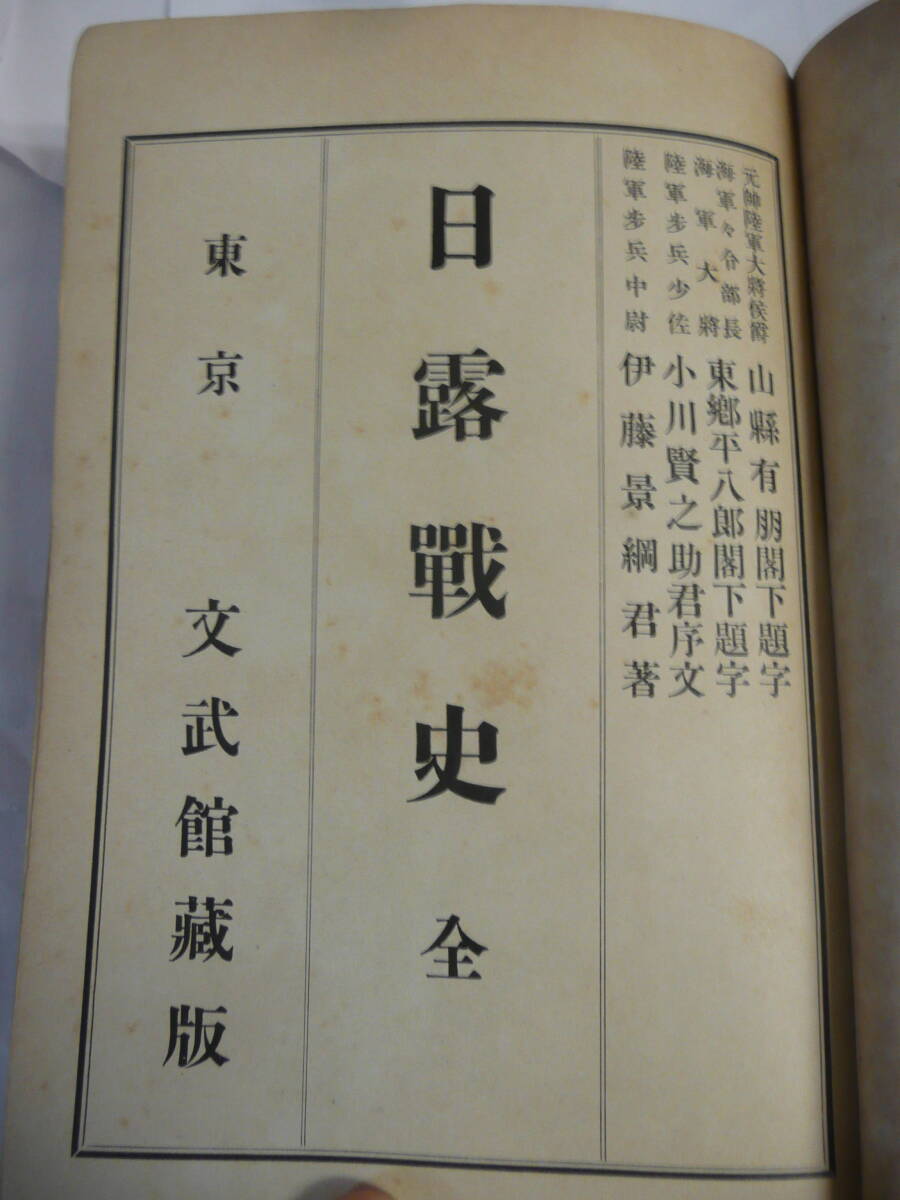 元帥陸軍大將侯爵 山縣有朋閣下題字
海軍々令部長
海軍大將 東鄕平八郎閣下題字
陸軍步兵少佐 小川賢之助君序文
陸軍步兵中尉 伊藤景綱君著
日露戰史 全
東京 文武館藏版